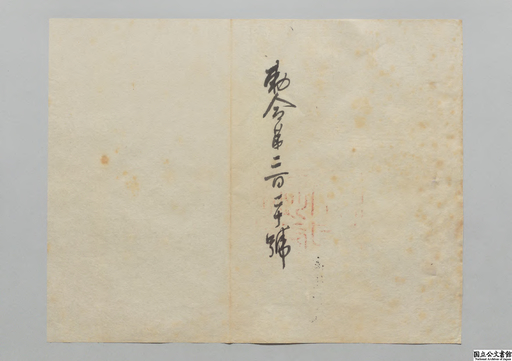 勅令第二百二十號
国立公文書館
National Archives of Japan